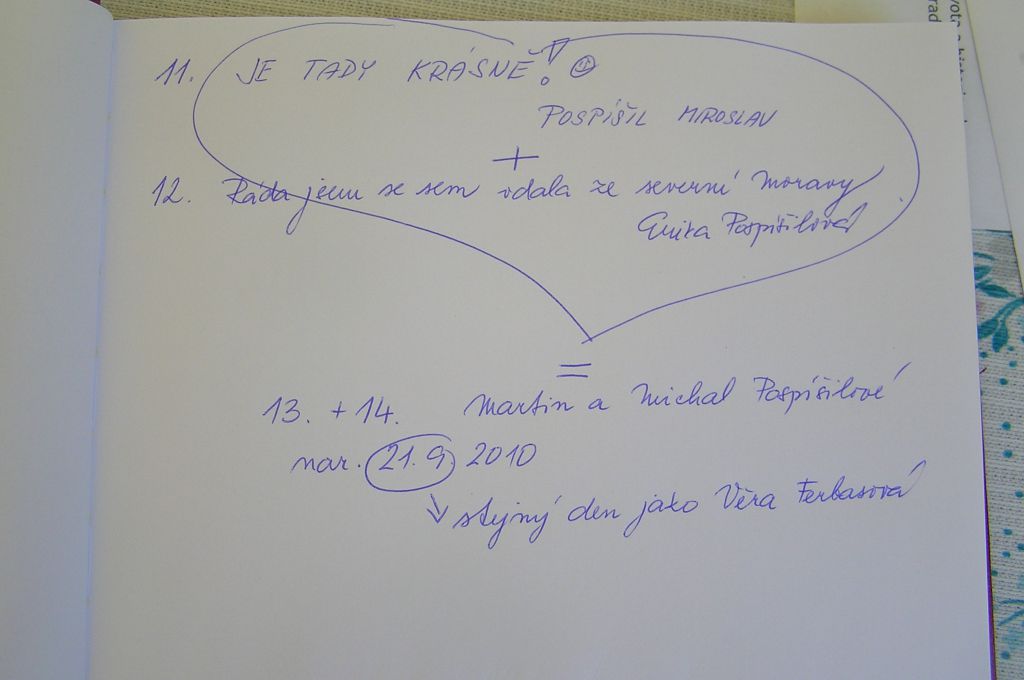 11. JE TADY KRÁSNĚ! ☺
POSPÍŠIL MIROSLAV
+
12. Ráda jsem se sem vdala ze severní Moravy
Pospíšilová
=
13. + 14. Martin a Michal Pospíšilové
nar. 21.9 2010
↘ stejný den jako Věra Ferbasová